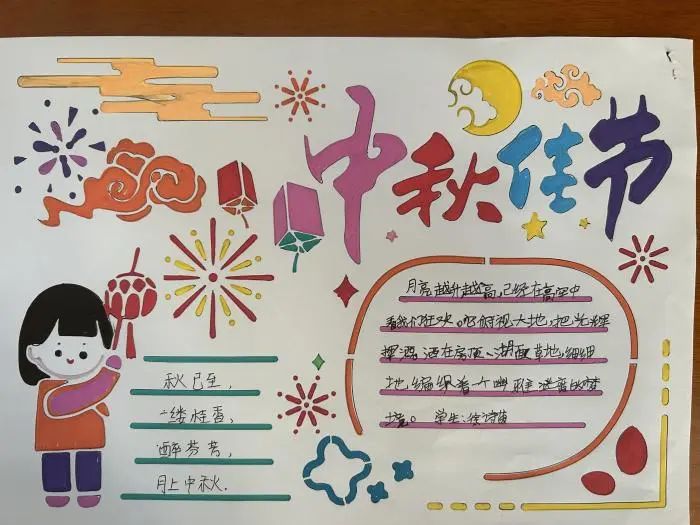 中秋佳节
月亮越升越高,已经在高空中
看我们狂欢。它俯视大地,把光辉
挥洒,洒在房顶、湖面草地,细细
地编织着一个幽雅迷蒙的梦
境。 学生:徐诗苗
秋已至,
一缕桂香,
醉芬芳,
月上中秋.